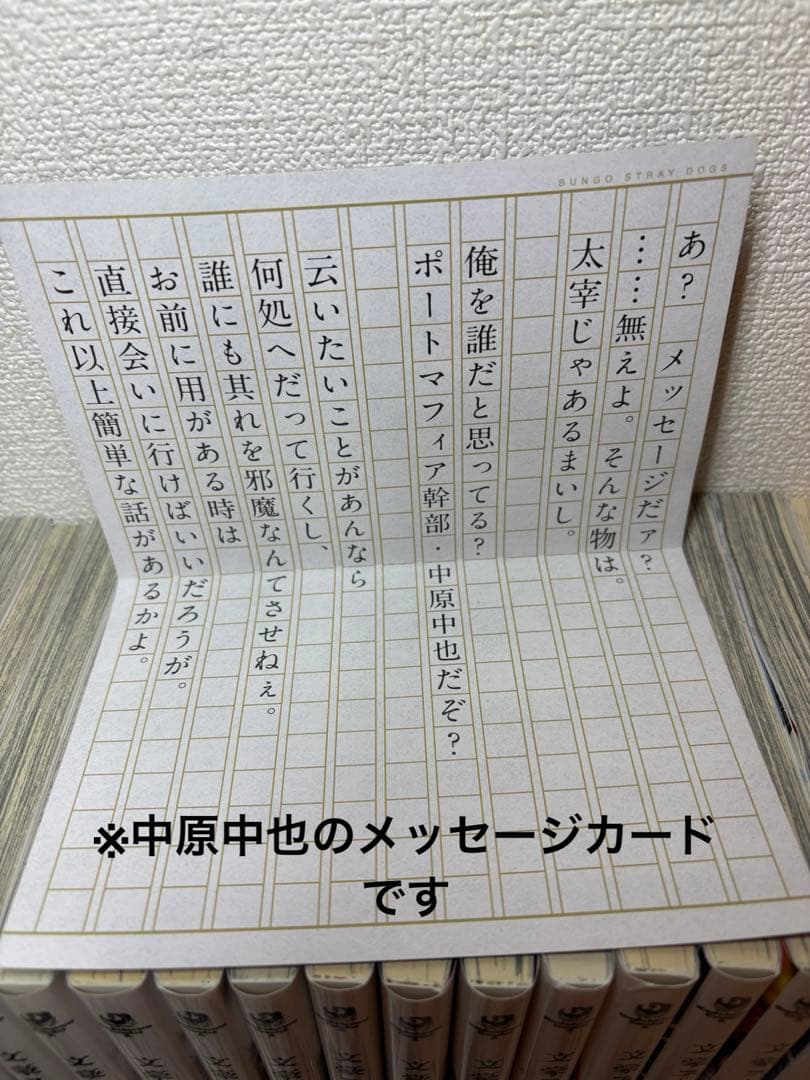 BUNGO STRAY DOGS
あ？　メッセージだァ？
……無えよ。そんな物は。
太宰じゃあるまいし。
俺を誰だと思ってる？
ポートマフィア幹部・中原中也だぞ？
云いたいことがあんなら
何処へだって行くし、
誰にも其れを邪魔なんてさせねぇ。
お前に用がある時は
直接会いに行けばいいだろうが。
これ以上簡単な話があるかよ。
※中原中也のメッセージカード
です